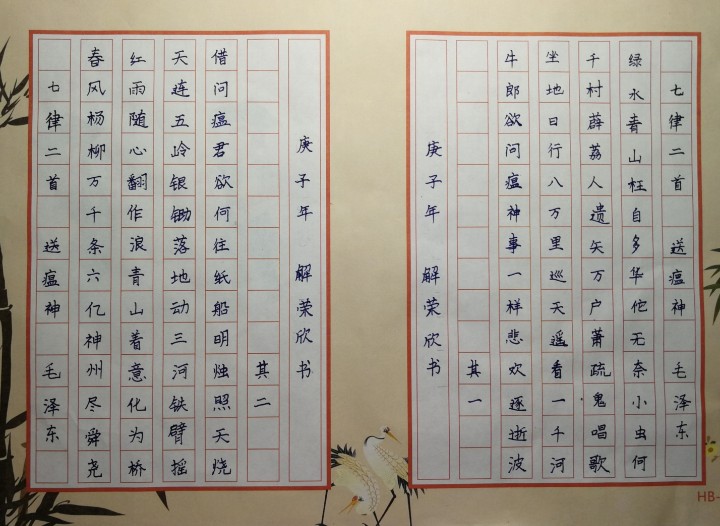 七律二首 送瘟神 毛泽东
绿水青山枉自多华佗无奈小虫何
千村薜荔人遗矢万户萧疏鬼唱歌
坐地日行八万里巡天遥看一千河
牛郎欲问瘟神事一样悲欢逐逝波
其一
庚子年 解荣欣书
七律二首 送瘟神 毛泽东
春风杨柳万千条六亿神州尽舜尧
红雨随心翻作浪青山着意化为桥
天连五岭银锄落地动三河铁臂摇
借问瘟君欲何往纸船明烛照天烧
其二
庚子年 解荣欣书